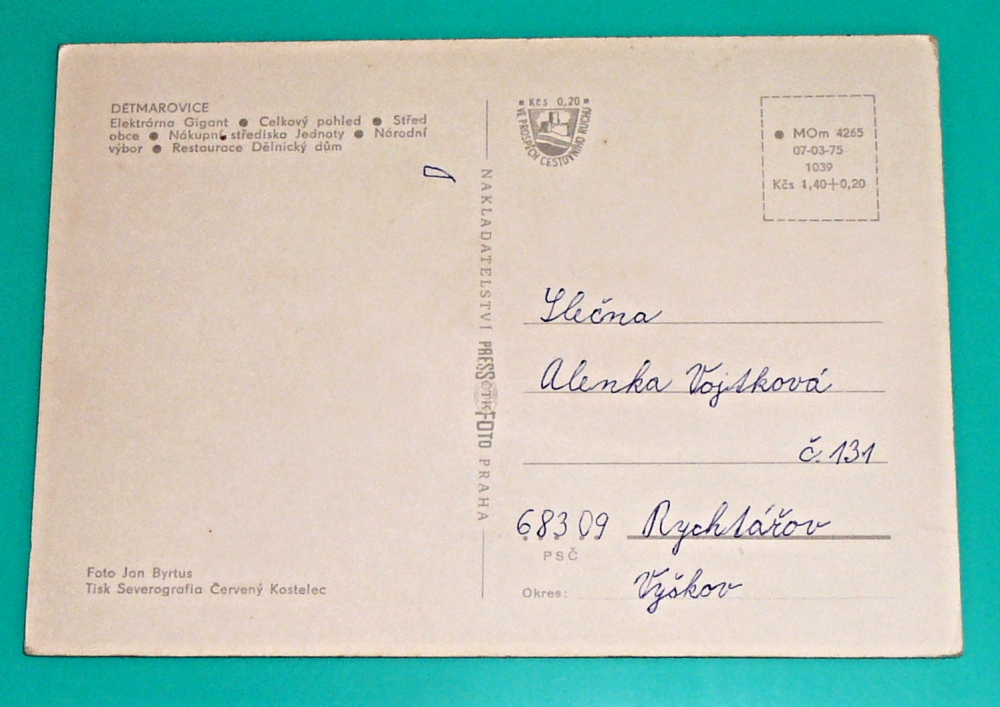 DĚTMAROVICE
Elektrárna Gigant ● Celkový pohled ● Střed
obce ● Nákupní střediska Jednoty ● Národní
výbor ● Restaurace Dělnický dům
Foto Jan Byrtus
Tisk Severografia Červený Kostelec
NAKLADATELSTVÍ PRESSFOTO PRAHA
ČTK
Kčs 0,20
VE PROSPĚCH CESTOVNÍHO RUCHU
● MOm 4265
07-03-75
1039
Kčs 1,40+0,20
Slečna
Alenka Vojtková
č. 131
68309 Rychtářov
PSČ
Okres: Vyškov